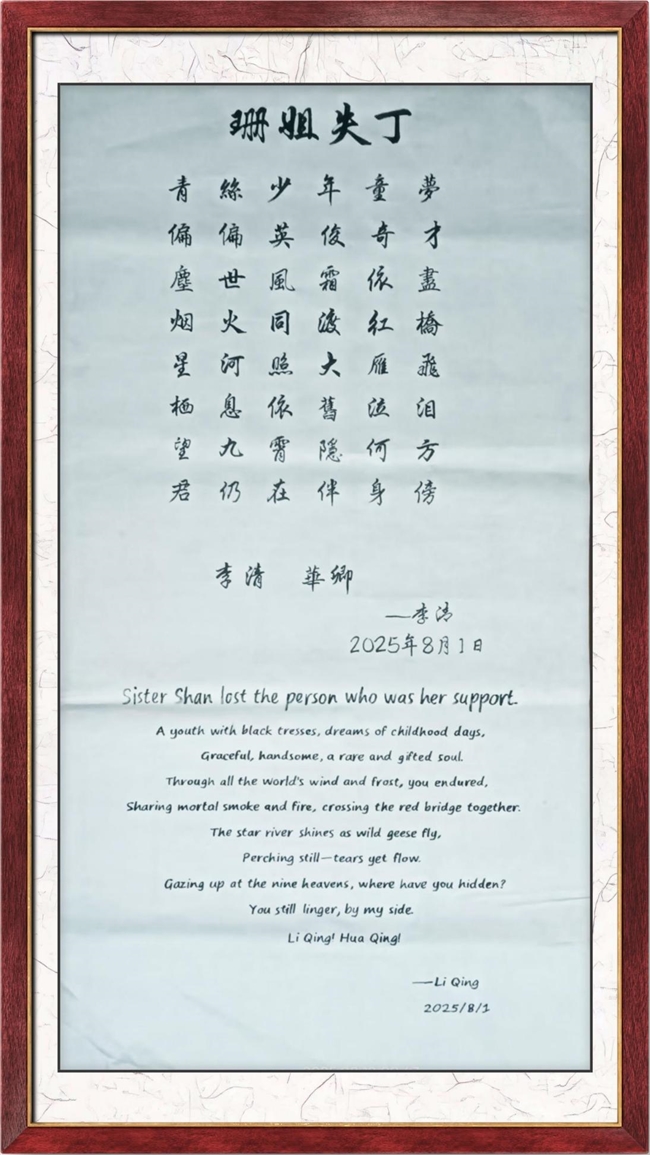 珊姐失丁
青絲少年童夢
偏偏英俊奇才
塵世風霜依盡
烟火同渡紅橋
星河照大雁飛
栖息依舊泣泪
望九霄隱何方
君仍在伴身傍
李清 華卿
——李清
2025年8月1日
Sister Shan lost the person who was her support.
A youth with black tresses, dreams of childhood days,
Graceful, handsome, a rare and gifted soul.
Through all the world's wind and frost, you endured,
Sharing mortal smoke and fire, crossing the red bridge together.
The star river shines as wild geese fly,
Perching still—tears yet flow.
Gazing up at the nine heavens, where have you hidden?
You still linger, by my side.
Li Qing! Hua Qing!
——Li Qing
2025/8/1